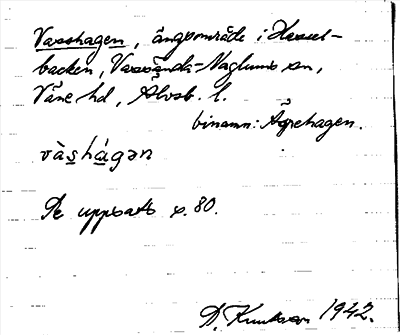 Vasshagen, ängsområde i Hassel-
backen, Vassända-Naglums sn,
Väne hd, Älvsb. l.
binamn: Ågrehagen.
vàs̱há̱gən
Se uppsats s. 80.
A. Knutsson 1942.